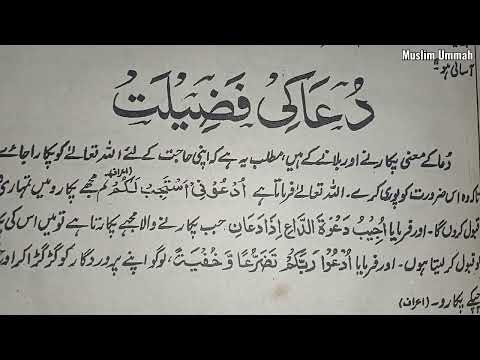 Muslim Ummah
آسانی ہو۔"
دُعا کی فَضِیلت
دُعا کے معنی پکارنے اور بلانے کے ہیں، مطلب یہ ہے کہ اپنی حاجت کے لئے اللہ تعالٰے کو پکارا جائے
تاکہ وہ اس ضرورت کو پوری کرے۔ اللہ تعالٰے فرماتا ہے اُدْعُوْنِیْ اَسْتَجِبْ لَکُمْ تم مجھے پکارو میں تمہاری
قبول کروں گا۔ اور فرمایا اُجِیْبُ دَعْوَةَ الدَّاعِ اِذَا دَعَانِ جب پکارنے والا مجھے پکارتا ہے تو میں اس کی پ
و قبول کر لیتا ہوں۔ اور فرمایا اُدْعُوْا رَبَّکُمْ تَضَرُّعًا وَّ خُفْیَةً، لوگو اپنے پروردگار کو گڑگڑا کر اور
چپکے پکارو۔ (اعراف)